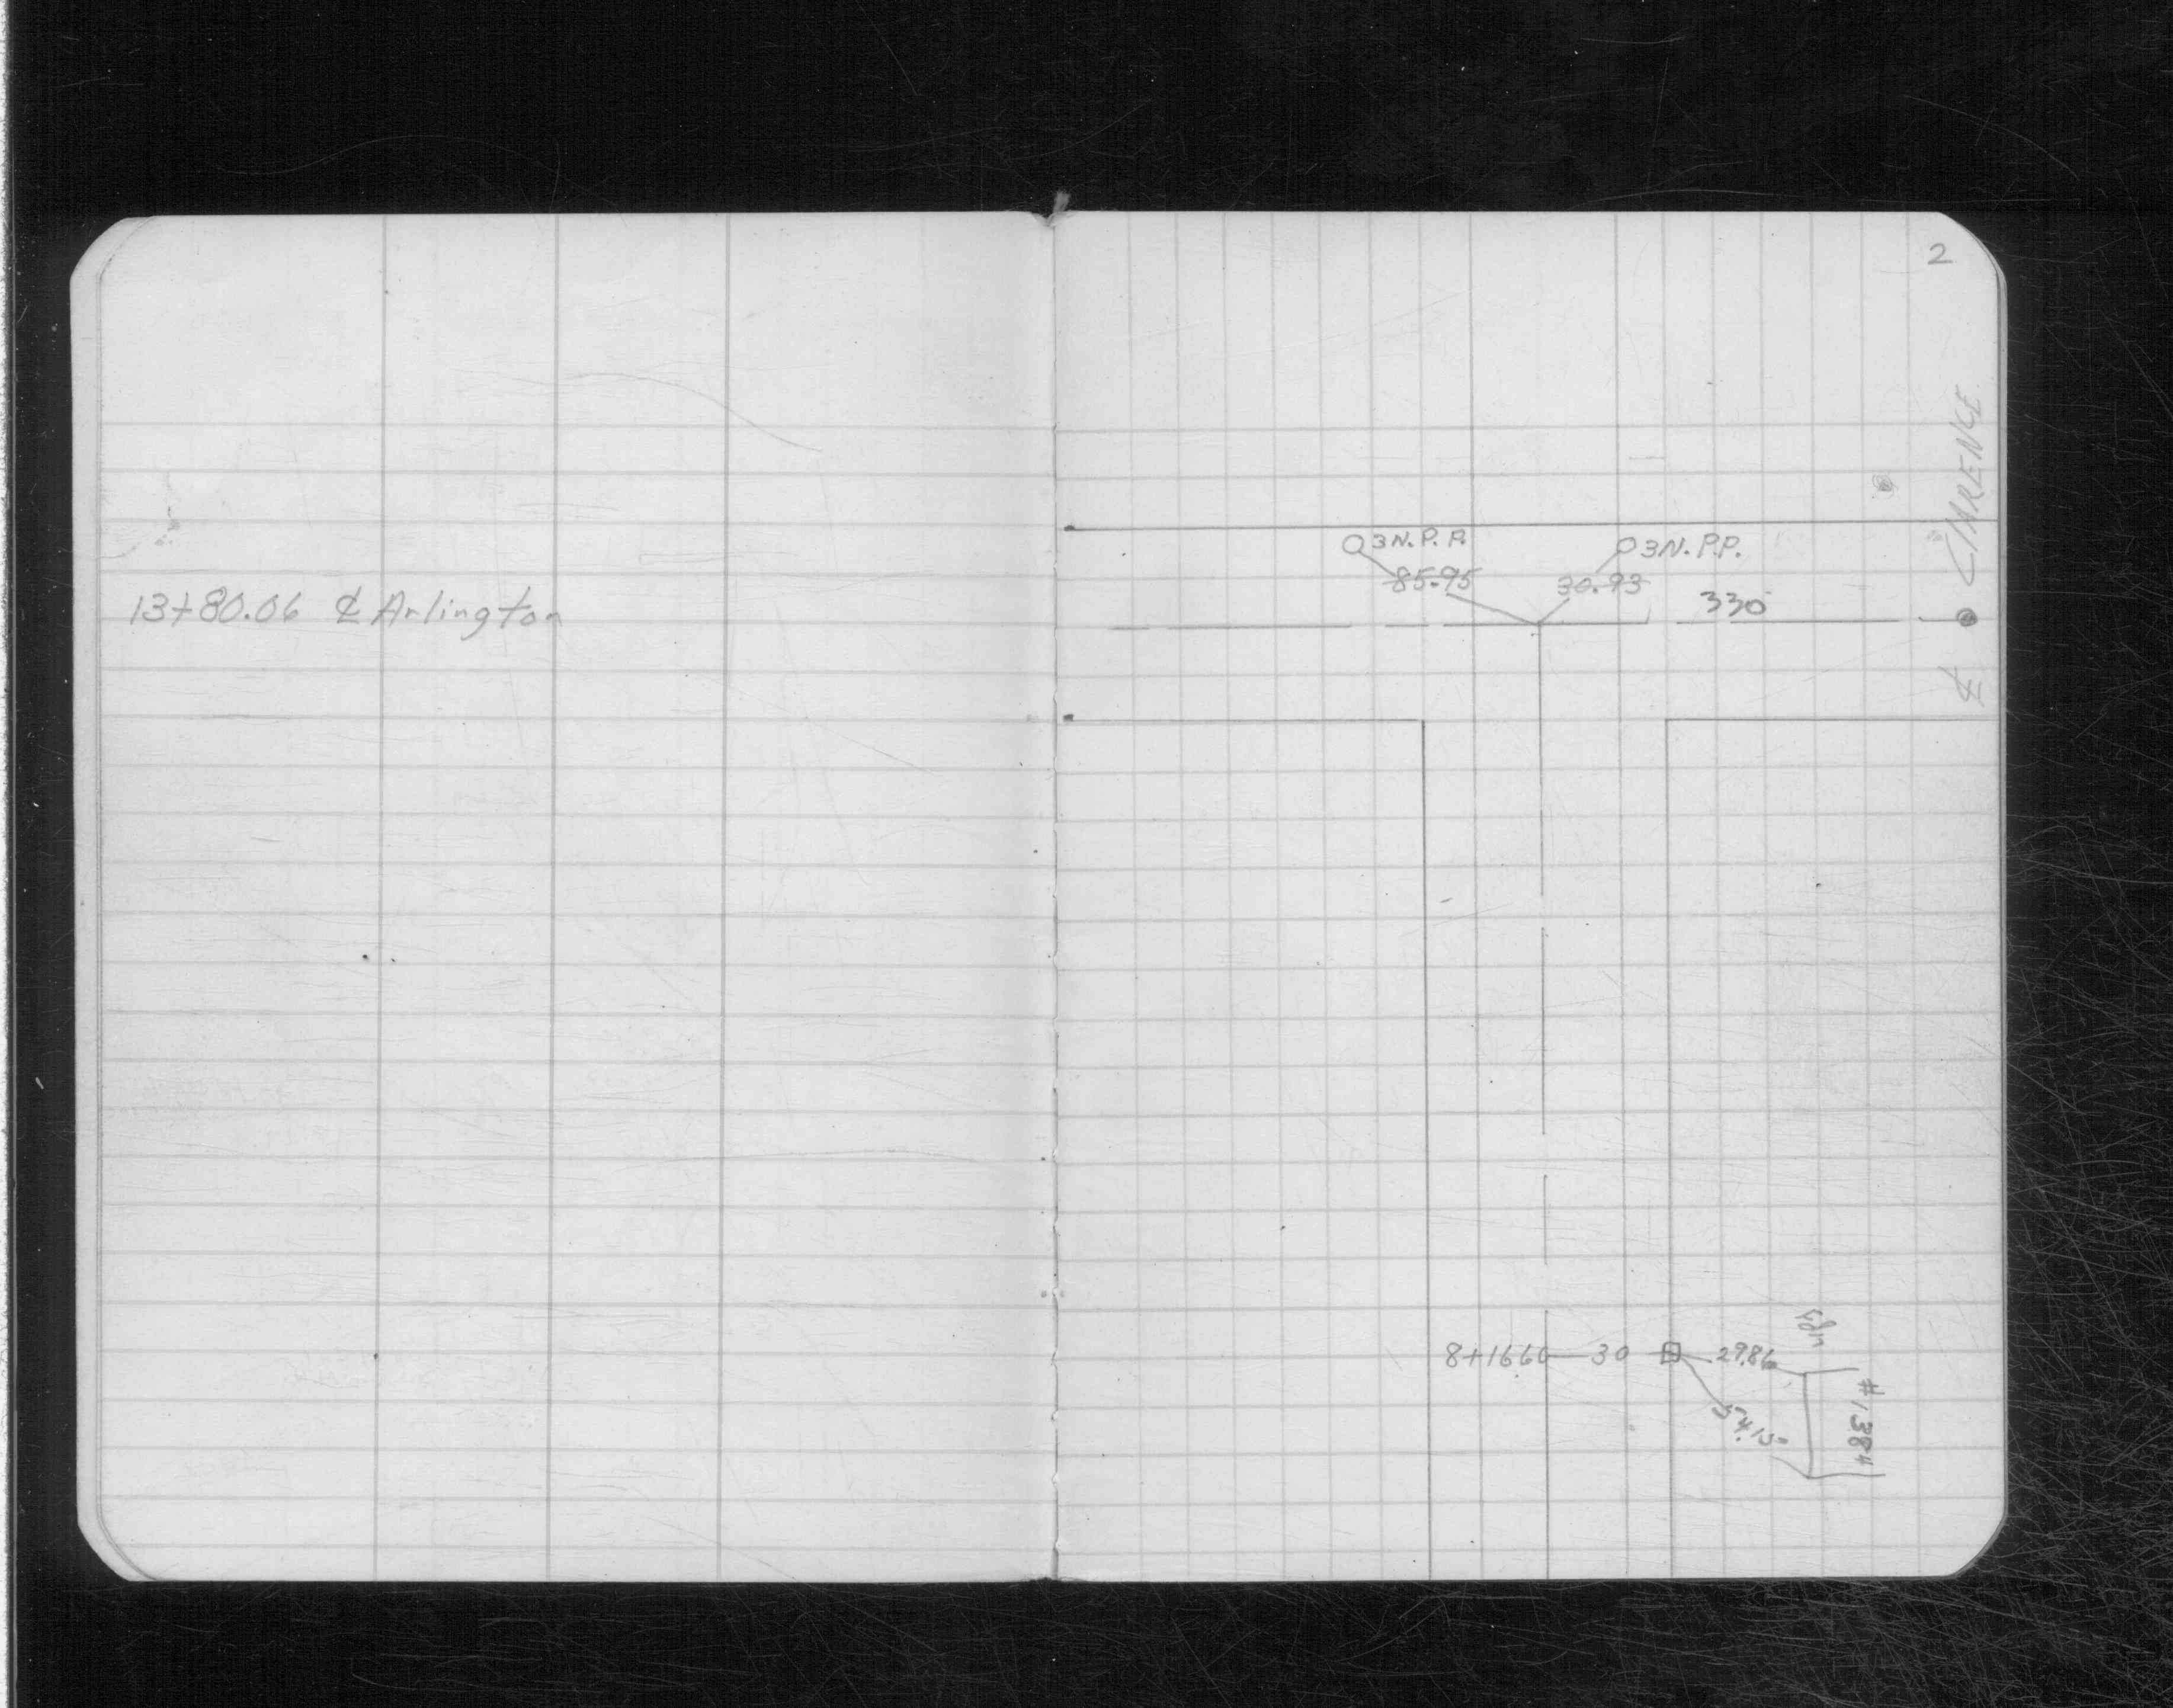 2
℄ CLARENCE
3N. P. P.
3N. P.P.
85.95
30.93
330
13+80.06 ℄ Arlington
8+16.60
30
29.86
54.15
#1384